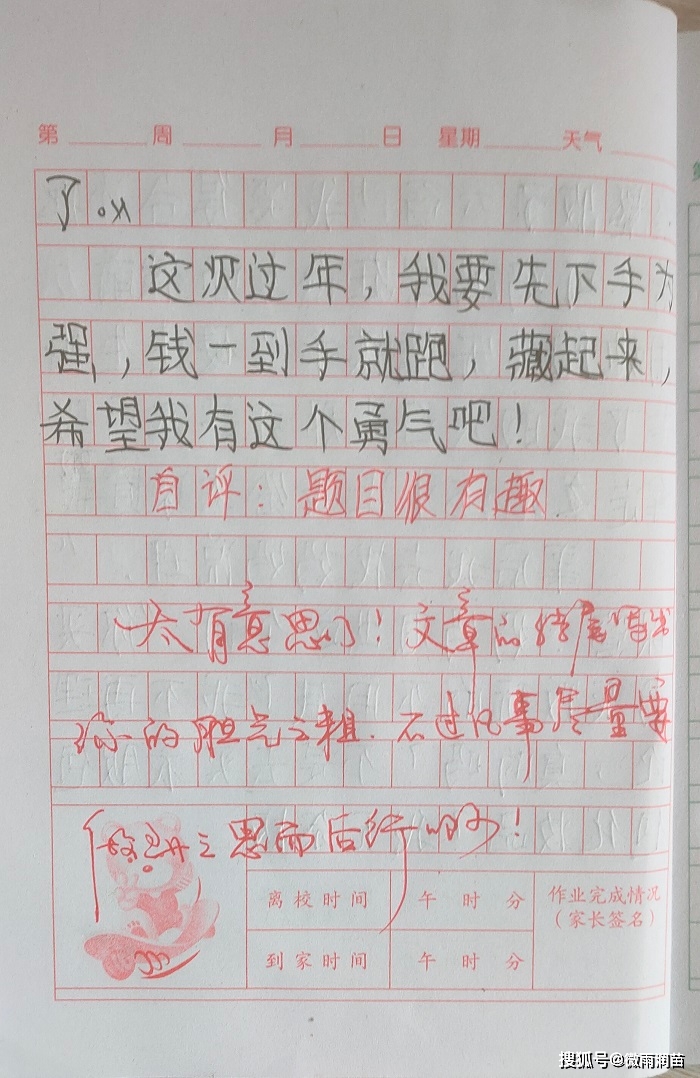 第 周 月 日 星期 天气
了。
这次过年，我要先下手为
强，钱一到手就跑，藏起来，
希望我有这个勇气吧！
自评：题目很有趣
太有意思了！文章的结尾写出
你的胆气之粗．不过凡事尽量要
做到三思而后行哟！
离校时间 午 时 分 作业完成情况
（家长签名）
到家时间 午 时 分
搜狐号@微雨润苗